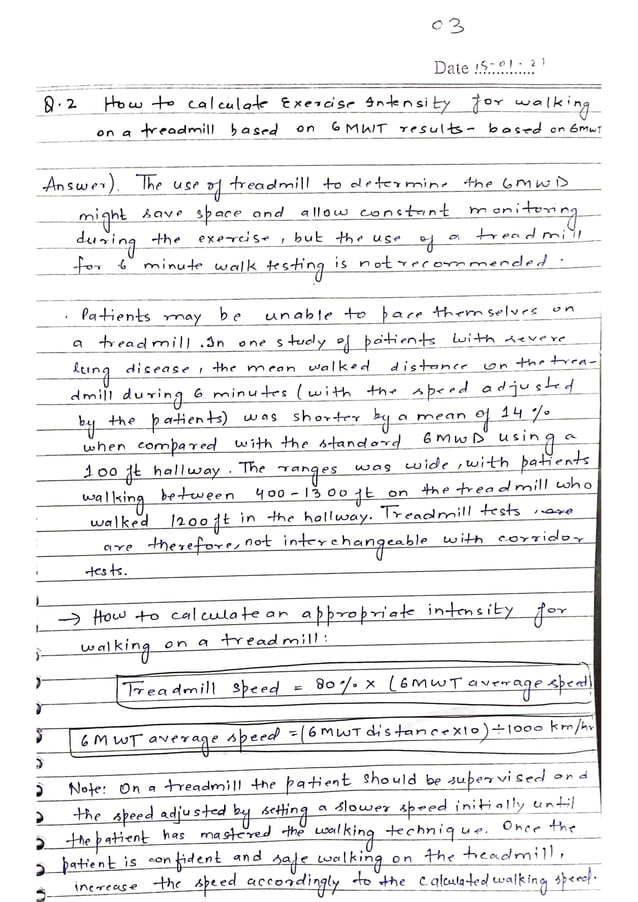 03
Date 15-01-21
Q.2 How to calculate Exercise Intensity for walking
on a treadmill based on 6MWT results - based on 6MWT
Answer). The use of treadmill to determine the 6MWD
might save space and allow constant monitoring
during the exercise, but the use of a treadmill
for 6 minute walk testing is not recommended.
. Patients may be unable to pace themselves on
a treadmill. In one study of patients with severe
lung disease, the mean walked distance on the trea-
dmill during 6 minutes (with the speed adjusted
by the patients) was shorter by a mean of 14%
when compared with the standard 6MWD using a
100 ft hallway. The ranges was wide, with patients
walking between 400-1300 ft on the treadmill who
walked 1200 ft in the hallway. Treadmill tests are
are therefore, not interchangeable with corridor
tests.
→ How to calculate an appropriate intensity for
walking on a treadmill:
Treadmill speed = 80% × (6MWT average speed)
6MWT average speed = (6MWT distance×10)÷1000 km/hr
Note: On a treadmill the patient should be supervised and
the speed adjusted by setting a slower speed initially until
the patient has mastered the walking technique. Once the
patient is confident and safe walking on the treadmill,
increase the speed accordingly to the calculated walking speed.